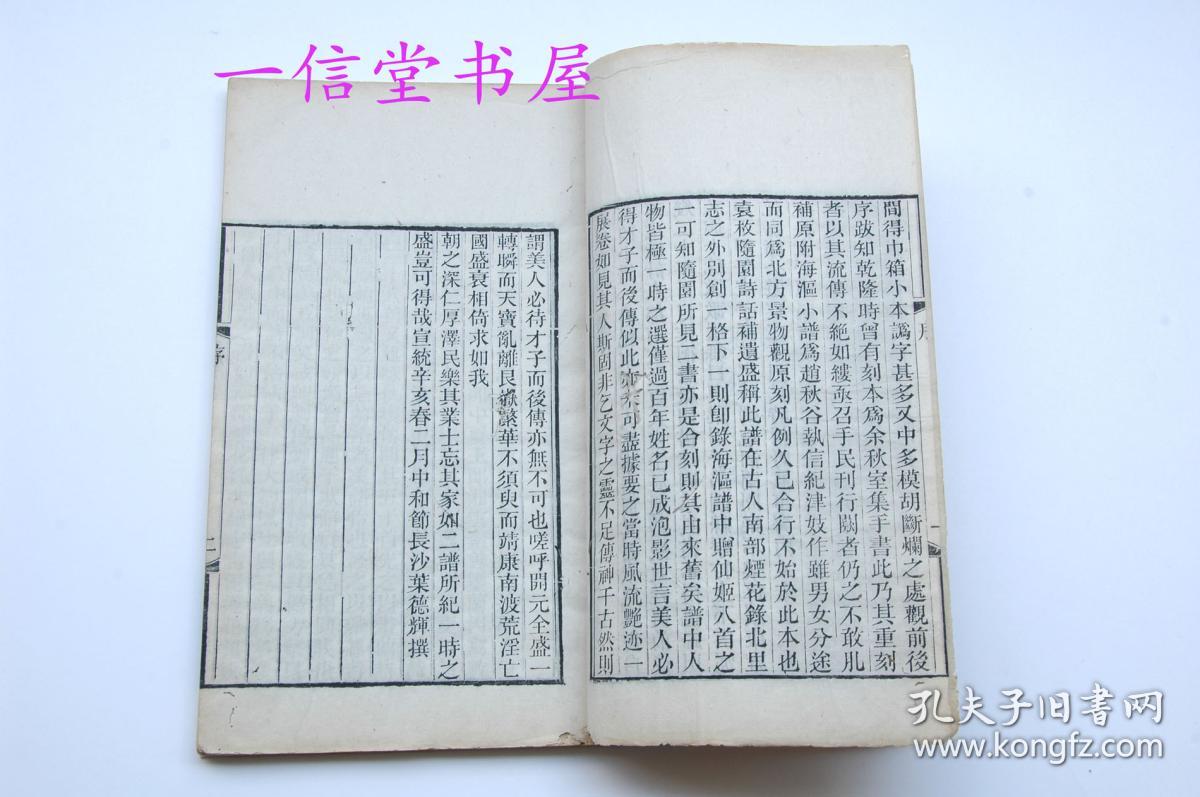 一信堂书屋
間得巾箱小本譌字甚多又中多模胡斷爛之處觀前後
序跋知乾隆時曾有刻本爲余秋室集手書此乃其重刻
者以其流傳不絕如縷亟召手民刊行闕者仍之不敢肊
補原附海漚小譜爲趙秋谷執信紀津妓作雖男女分途
而同爲北方景物觀原刻凡例久已合行不始於此本也
袁枚隨園詩話補遺盛稱此譜在古人南部煙花錄北里
志之外別創一格下一則卽錄海漚譜中贈仙姬八首之
一可知隨園所見二書亦是合刻則其由來舊矣譜中人
物皆極一時之選僅過百年姓名已成泡影世言美人必
得才子而後傳似此亦未可盡據要之當時風流艷迹一
展卷如見其人斯固非乞文字之靈不足傳神千古然則
序
一
謂美人必待才子而後傳亦無不可也嗟呼開元全盛一
轉瞬而天寶亂離艮嶽繁華不須臾而靖康南渡荒淫亡
國盛衰相倚求如我
朝之深仁厚澤民樂其業士忘其家如二譜所紀一時之
盛豈可得哉宣統辛亥春二月中和節長沙葉德輝撰
序
二
孔夫子旧书网
www.kongfz.com